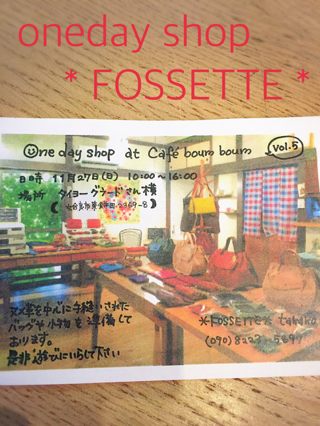 oneday shop
* FOSSETTE *
One day shop at Café boum boum
Vol.5
日時 11月27日(日) 10:00〜16:00
場所 タイヨーグラードさん横
ヌメ革を中心に手縫いされた
バッグや小物を準備して
おります。
是非遊びにいらして下さい
*FOSSETTE*
(090) 8223-5697